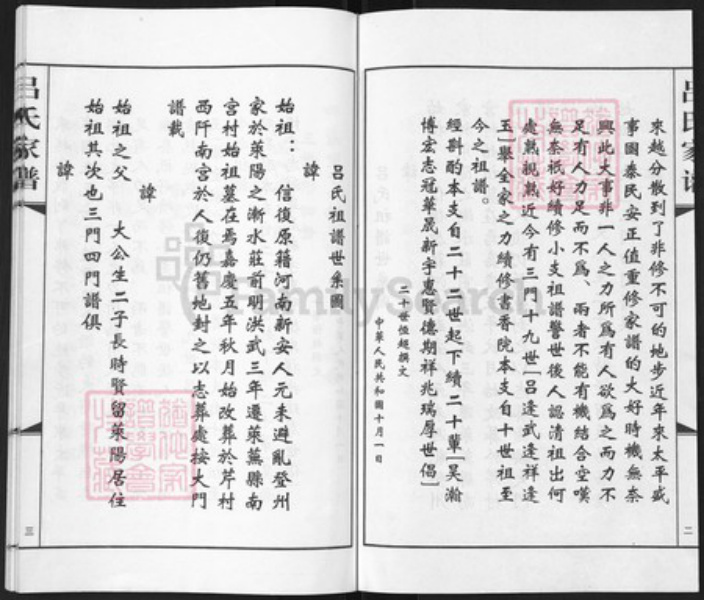 來越分散到了非修不可的地步近年來太平盛
事國泰民安正值重修家譜的大好時機無奈
興此大事非一人之力所為有人欲為之而力不
足有人力足而不為、兩者不能有機結合空嘆
無奈祇好續修小支祖譜警世後人認清祖出何
處孰親孰近今有三門十九世「呂逢武逢祥逢
玉」舉全家之力續修書香院本支自十世祖至
今之祖譜。
經斟酌本支自二十三世起下續二十輩「昊瀚
博宏志冠華晟新宇惠賢德期祥兆瑞厚世倡」
二十世恆超撰文
中華人民共和國十月一日
二
呂氏家譜
呂氏祖譜世系圖
諱
始祖： 信復原籍河南新安人元末避亂登州
家於萊陽之漸水莊前明洪武三年遷萊蕪縣南
宮村始祖墓在焉嘉慶五年秋月始改葬於芹村
西阡南宮於人復仍舊地封之以志葬處按大門
譜載
諱
始祖之父 大公生二子長時賢留萊陽居住
始祖其次也三門四門譜俱
諱
呂氏家譜
三
FamilySearch